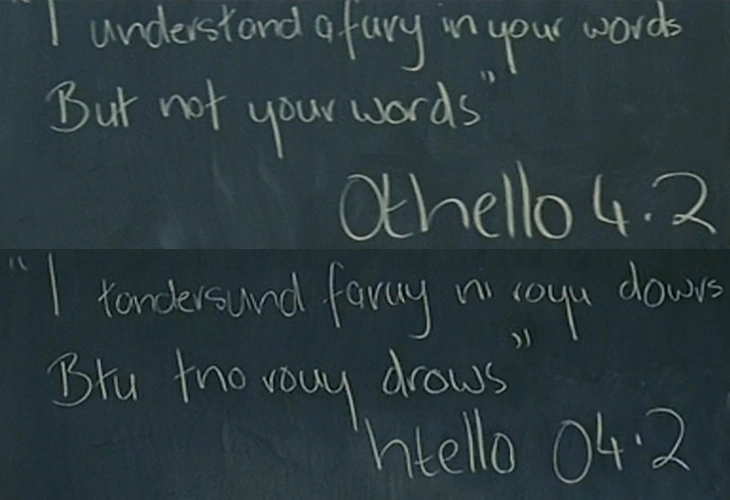 "I understand a fury in your words
But not your words"
Othello 4.2
"I tandersund faruy ni royu dowrs
Btu tno rouy drows"
htello O4.2